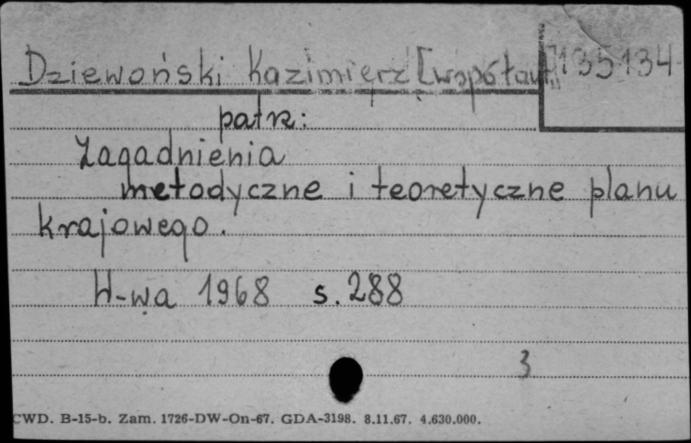 Dziewoński Kazimierz [współaut.] 135134
patrz:
Zagadnienia
metodyczne i teoretyczne planu
krajowego.
W-wa 1968 s. 288
3
CWD. B-15-b. Zam. 1726-DW-On-67. GDA-3198. 8.11.67. 4.630.000.